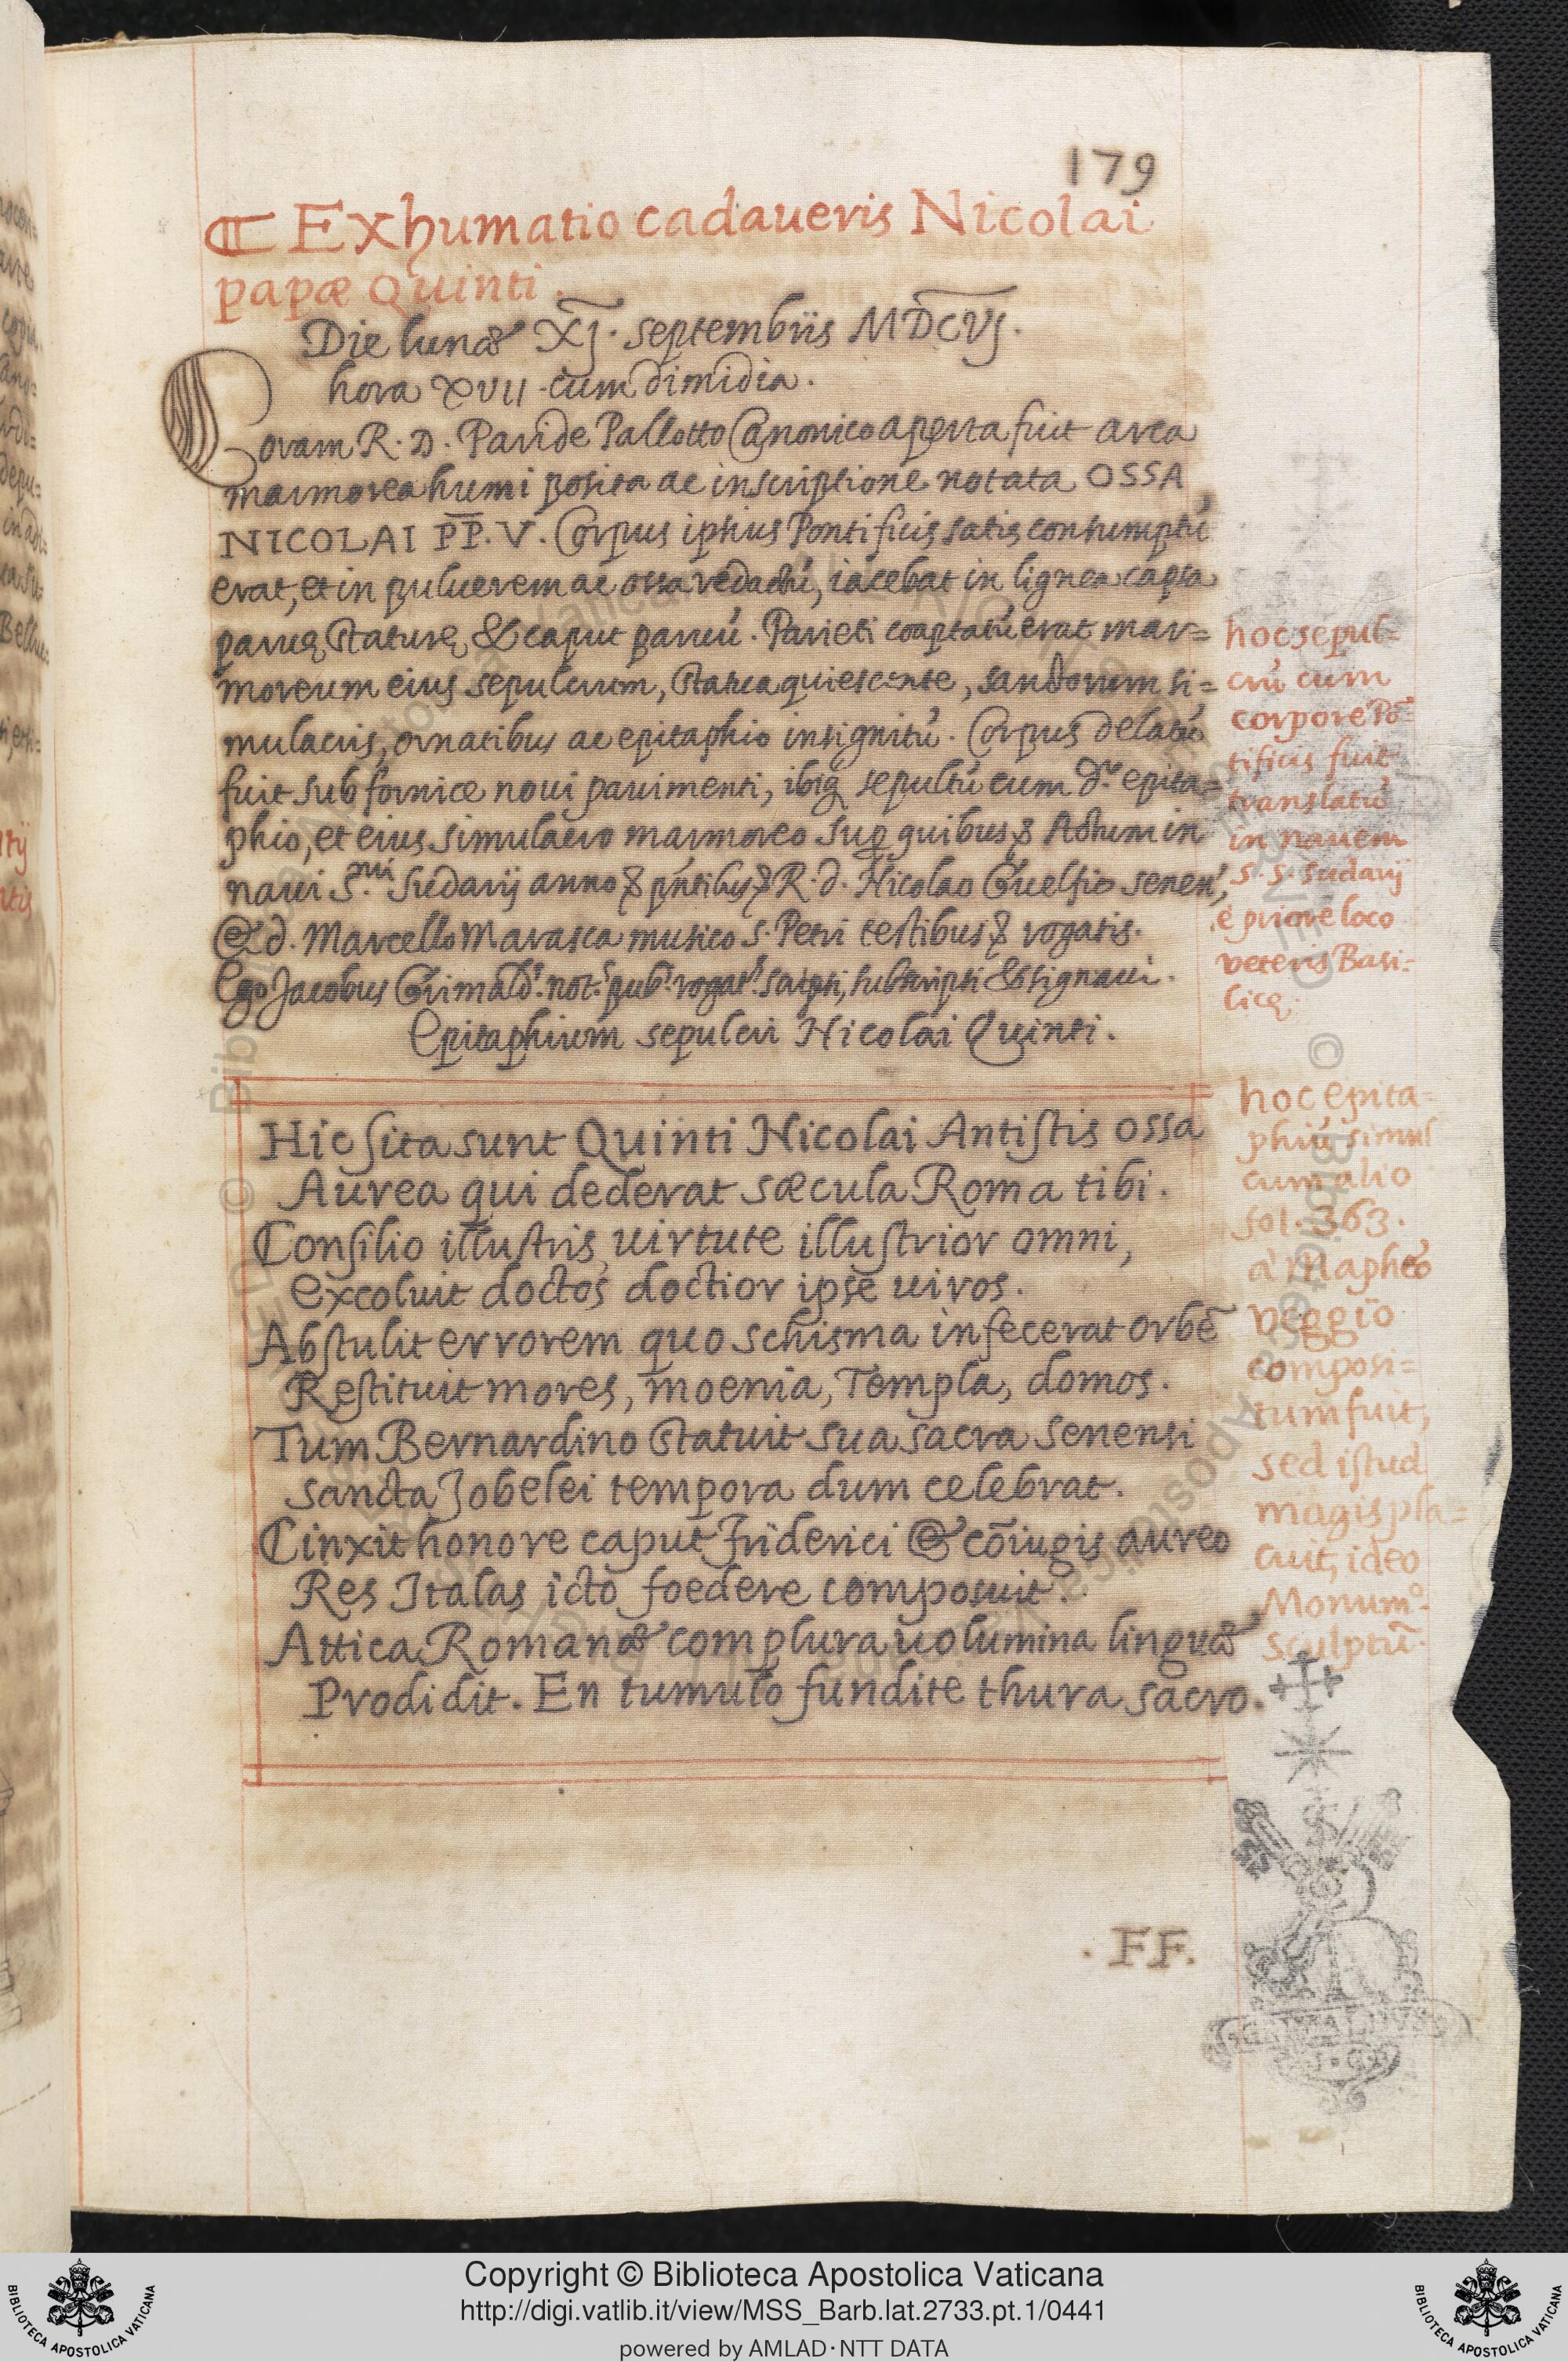 179
¶ Exhumatio cadaueris Nicolai
papæ Quinti.
Die lunæ XJ. septembris MDCVJ.
hora XVII cum dimidia.
Coram R. D. Paride Pallotto Canonico aperta fuit arca
marmorea humi posita ac inscriptione notata OSSA
NICOLAI PP. V. Corpus ipsius Pontificis satis consumptũ
erat, et in puluerem ac ossa redactũ, iacebat in lignea capsa
paruę staturę, & caput paruũ. Parieti coaptatũ erat mar=
moreum eius sepulcrum, statua quiescente, sanctorum si=
mulacris, ornatibus ac epitaphio insignitũ. Corpus delatũ
fuit sub fornice noui pauimenti, ibiq sepultũ cum d.º epita=
phio, et eius simulacro marmoreo sup quibus & Actum in
naui S.mi Sudarij anno & pntibus & R. d. Nicolao Guelfio senen,
& d. Marcello Marasca musico S. Petri testibus & rogatis.
Ego Jacobus Grimald.s not.s pub.s rogat.s scripsi, subscripsi & signaui.
Epitaphium sepulcri Nicolai Quinti.
hoc sepul=
crũ cum
corpore Põ=
tificis fuit
translatũ
in nauem
S. S. Sudarij
è priore loco
veteris Basi=
licę.
Hic sita sunt Quinti Nicolai Antistis ossa
Aurea qui dederat sæcula Roma tibi.
Consilio illustris, uirtute illustrior omni,
Excoluit doctos doctior ipse uiros.
Abstulit errorem quo schisma infecerat orbẽ
Restituit mores, moenia, Templa, domos.
Tum Bernardino statuit sua sacra senensi
Sancta Jobelei tempora dum celebrat.
Cinxit honore caput Friderici & cõiugis aureo
Res Italas icto foedere composuit.
Attica Romanæ complura uolumina linguæ
Prodidit. En tumulo fundite thura sacro.
hoc epita=
phiũ simul
cum alio
fol. 363.
à Mapheo
Veggio
composi=
tum fuit,
sed istud
magis pla=
cuit, ideo
Monum.º
sculptũ.
. FF.
Copyright © Biblioteca Apostolica Vaticana
http://digi.vatlib.it/view/MSS_Barb.lat.2733.pt.1/0441
powered by AMLAD·NTT DATA
BIBLIOTECA APOSTOLICA VATICANA
BIBLIOTECA APOSTOLICA VATICANA